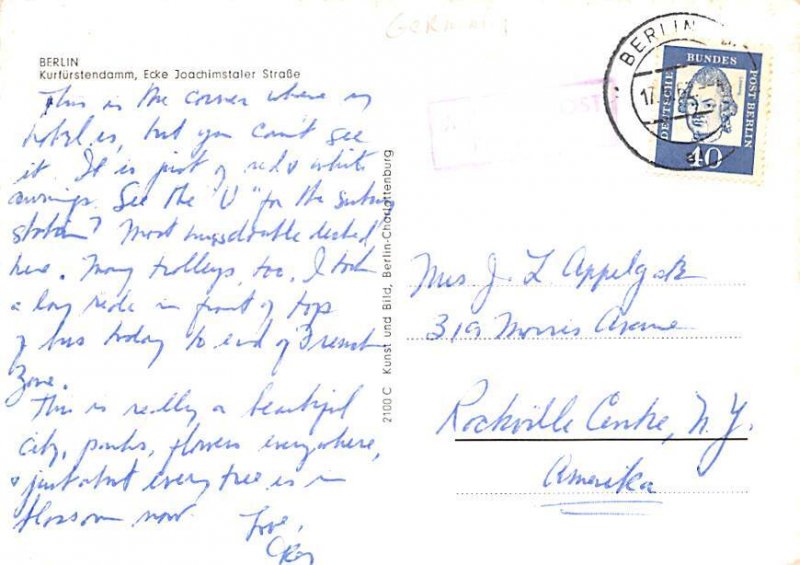 GERMANY
BERLIN
Kurfürstendamm, Ecke Joachimstaler Straße
This is the corner where my
hotel is, but you can't see
it. It is just of red & white
awnings. See the "U" for the subway
station? Most buses double decked
here. Many trolleys, too. I took
a long ride in front of top
of bus today to end of French
Zone.
This is really a beautiful
city, parks, flowers everywhere,
& just about every tree is in
blossom now.
Love,
2100 C Kunst und Bild, Berlin-Charlottenburg
BERLIN
17
DEUTSCHE BUNDES POST BERLIN
40
Mrs J. L Applegate
319 Morris Avenue
Rockville Centre, N.Y.
Amerika